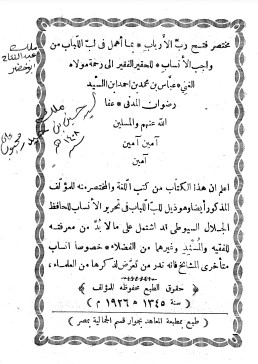 مختصر فتح رب الأرباب * بما أهمل في لب اللباب من
واجب الأنساب * للحقير الفقير الى رحمة مولاه
الغني * عباس بن محمد بن احمد ابن السيد
رضوان المدني * عفا
الله عنهم والمسلمين
آمين آمين
آمين
ملك
عبد الفتاح
ابو خضر
ملك
حسين بن
١٤٠٨ هـ
اعلم ان هذا الكتاب من كتب اللغة والمختصر منه للمؤلف
المذكور أيضا وهو ذيل لب اللباب في تحرير الأنساب للحافظ
الجلال السيوطي قد اشتمل على ما لا بد من معرفته
للفقيه والمسند وغيرهما من الفضلاء * خصوصا انساب
متأخرى المشايخ فانه ندر من تعرض لذكرها من العلماء ،
حقوق الطبع محفوظه للمؤلف
( سنة ١٣٤٥ هـ ١٩٢٦ م )
( طبع بمطبعة المعاهد بجوار قسم الجمالية بمصر )